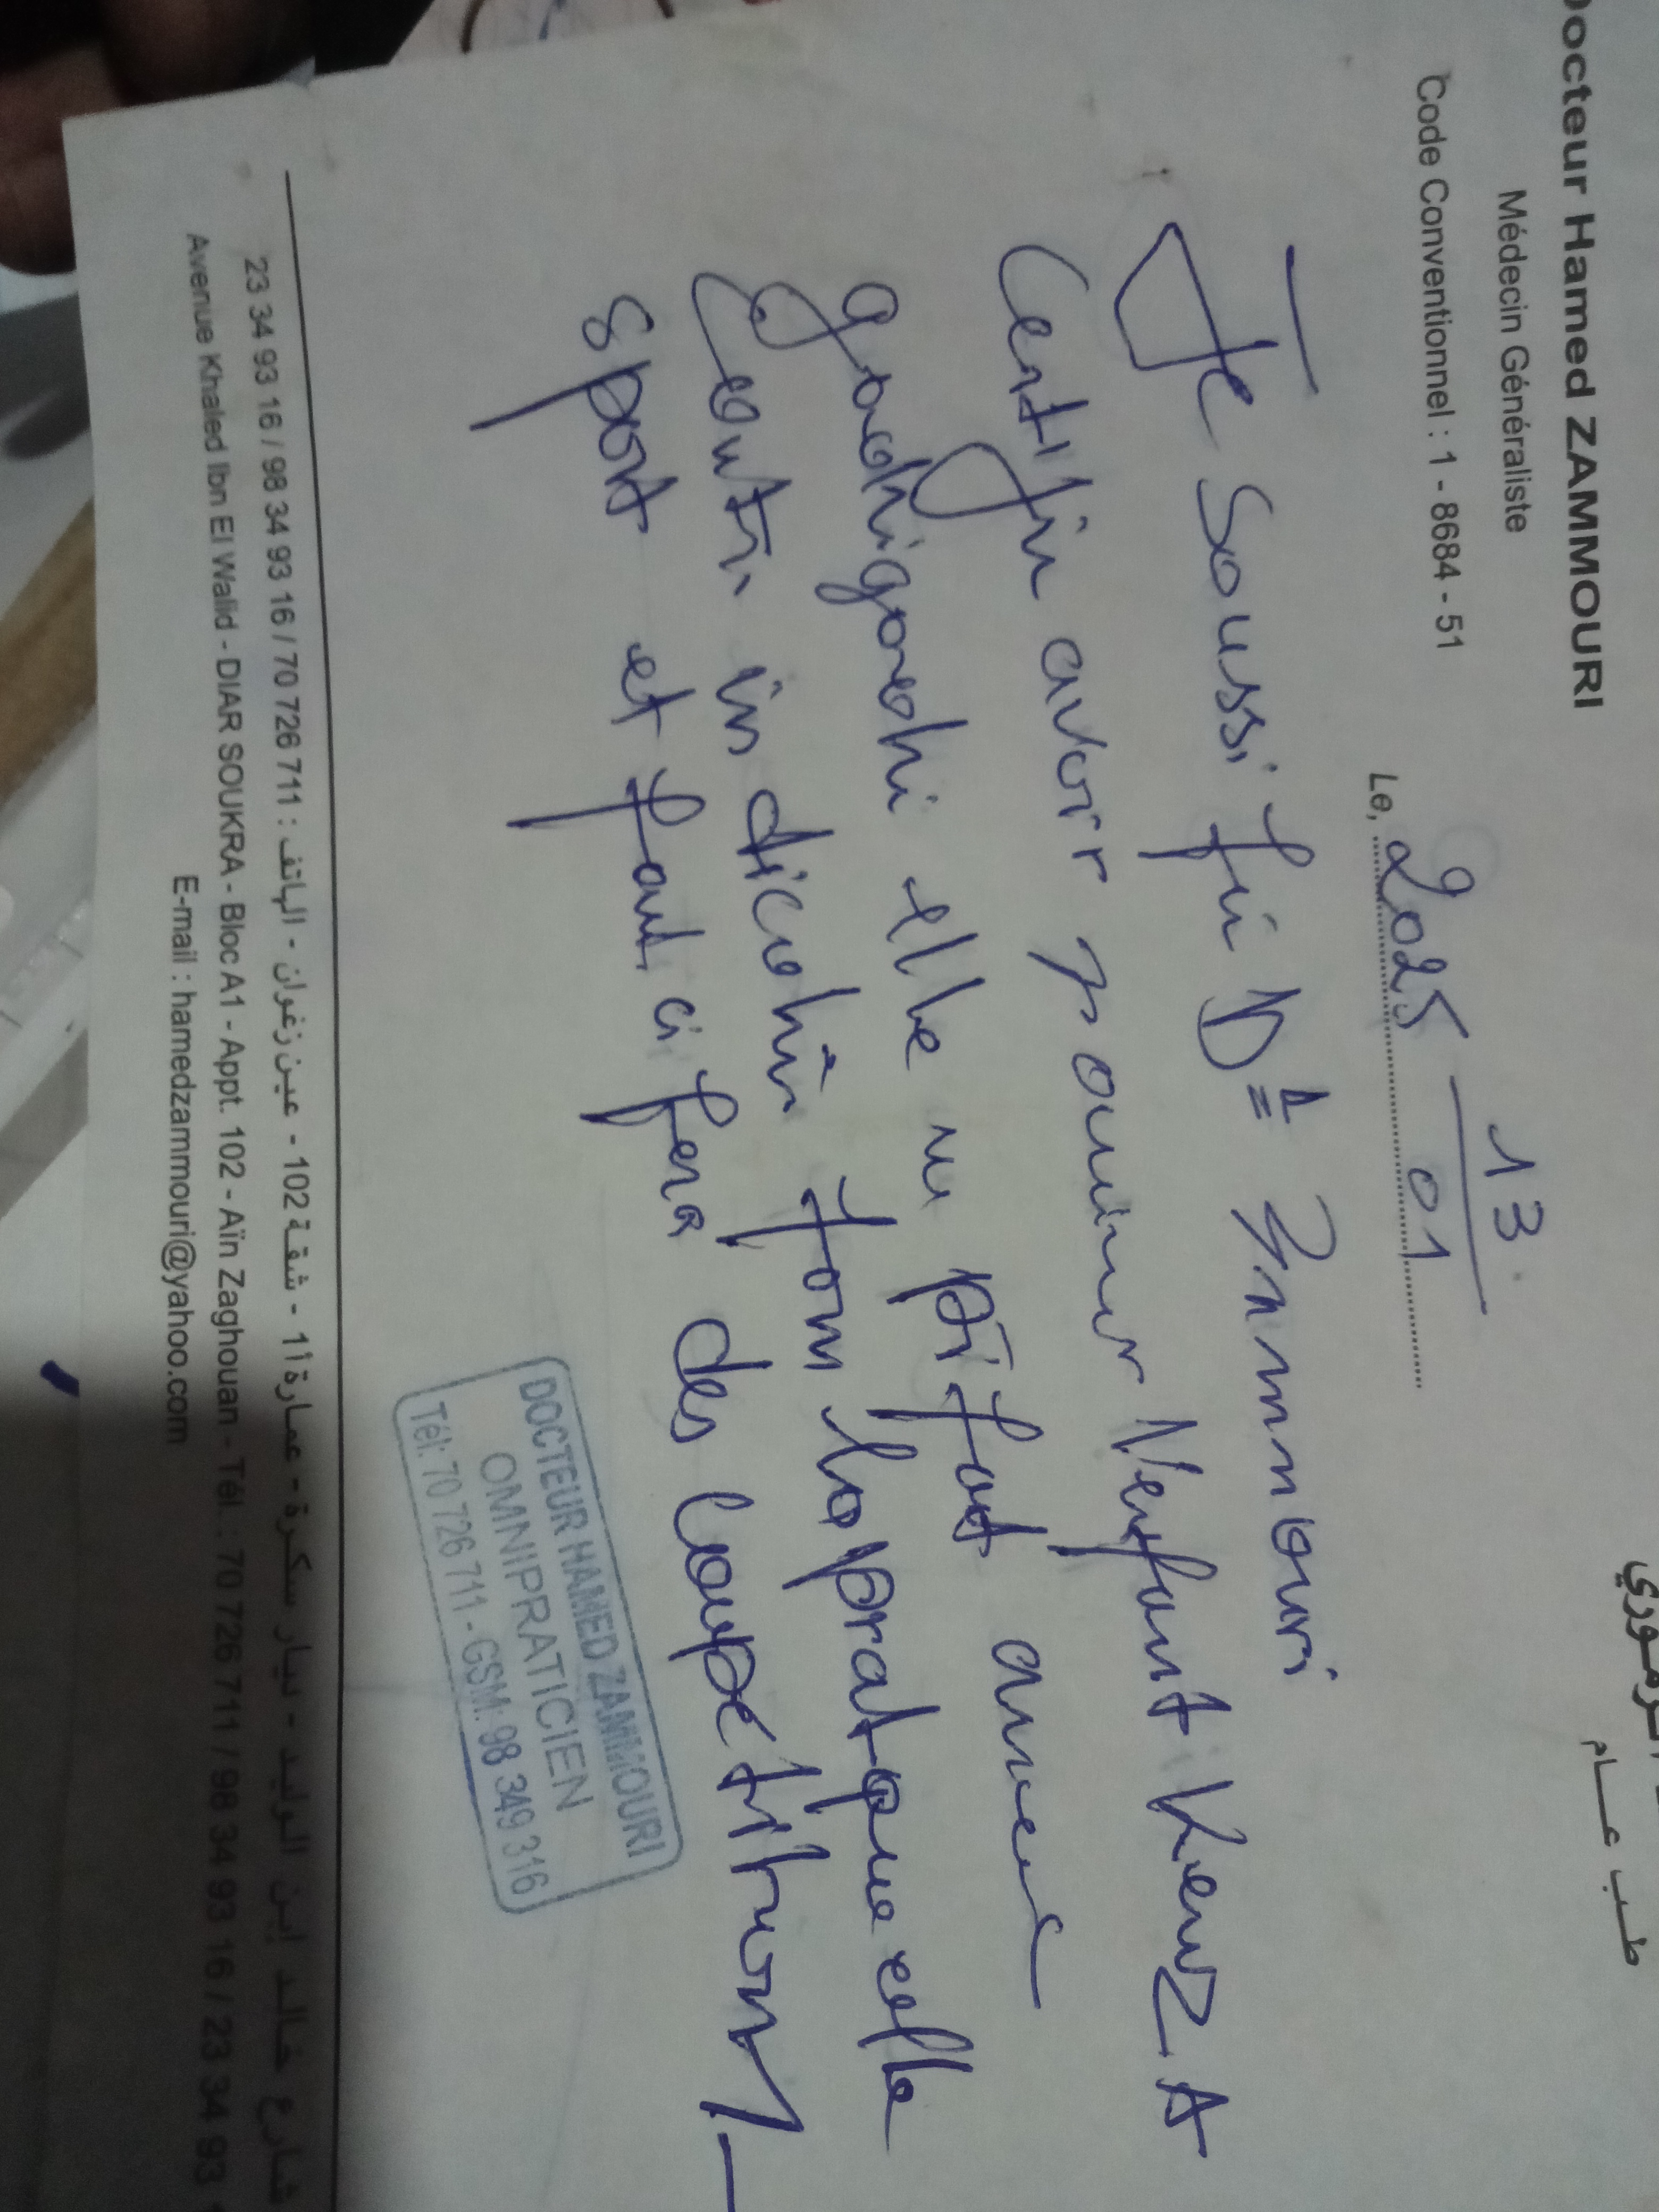 Docteur Hamed ZAMMOURI
Médecin Généraliste
Code Conventionnel : 1 - 8684 - 51
طب عام
13
Le, 2025 01
Je soussi fin Dr Zammouri
Certifie avoir examiner l'enfant Kenz A
elle ne présent aucune
contre indication pour la pratique elle
sport et participera des Compétitions
DOCTEUR HAMED ZAMMOURI
OMNIPRATICIEN
Tél: 70 726 711 - GSM: 98 349 316
شارع خالد ابن الوليد - ديار سكرة - عمارة أ1 - شقة 102 - عين زغوان - الهاتف : 23 34 93 16 / 98 34 93 16 / 70 726 711
Avenue Khaled Ibn El Walid - DIAR SOUKRA - Bloc A1 - Appt. 102 - Aïn Zaghouan - Tél. : 70 726 711 / 98 34 93 16 / 23 34 93
E-mail : hamedzammouri@yahoo.com